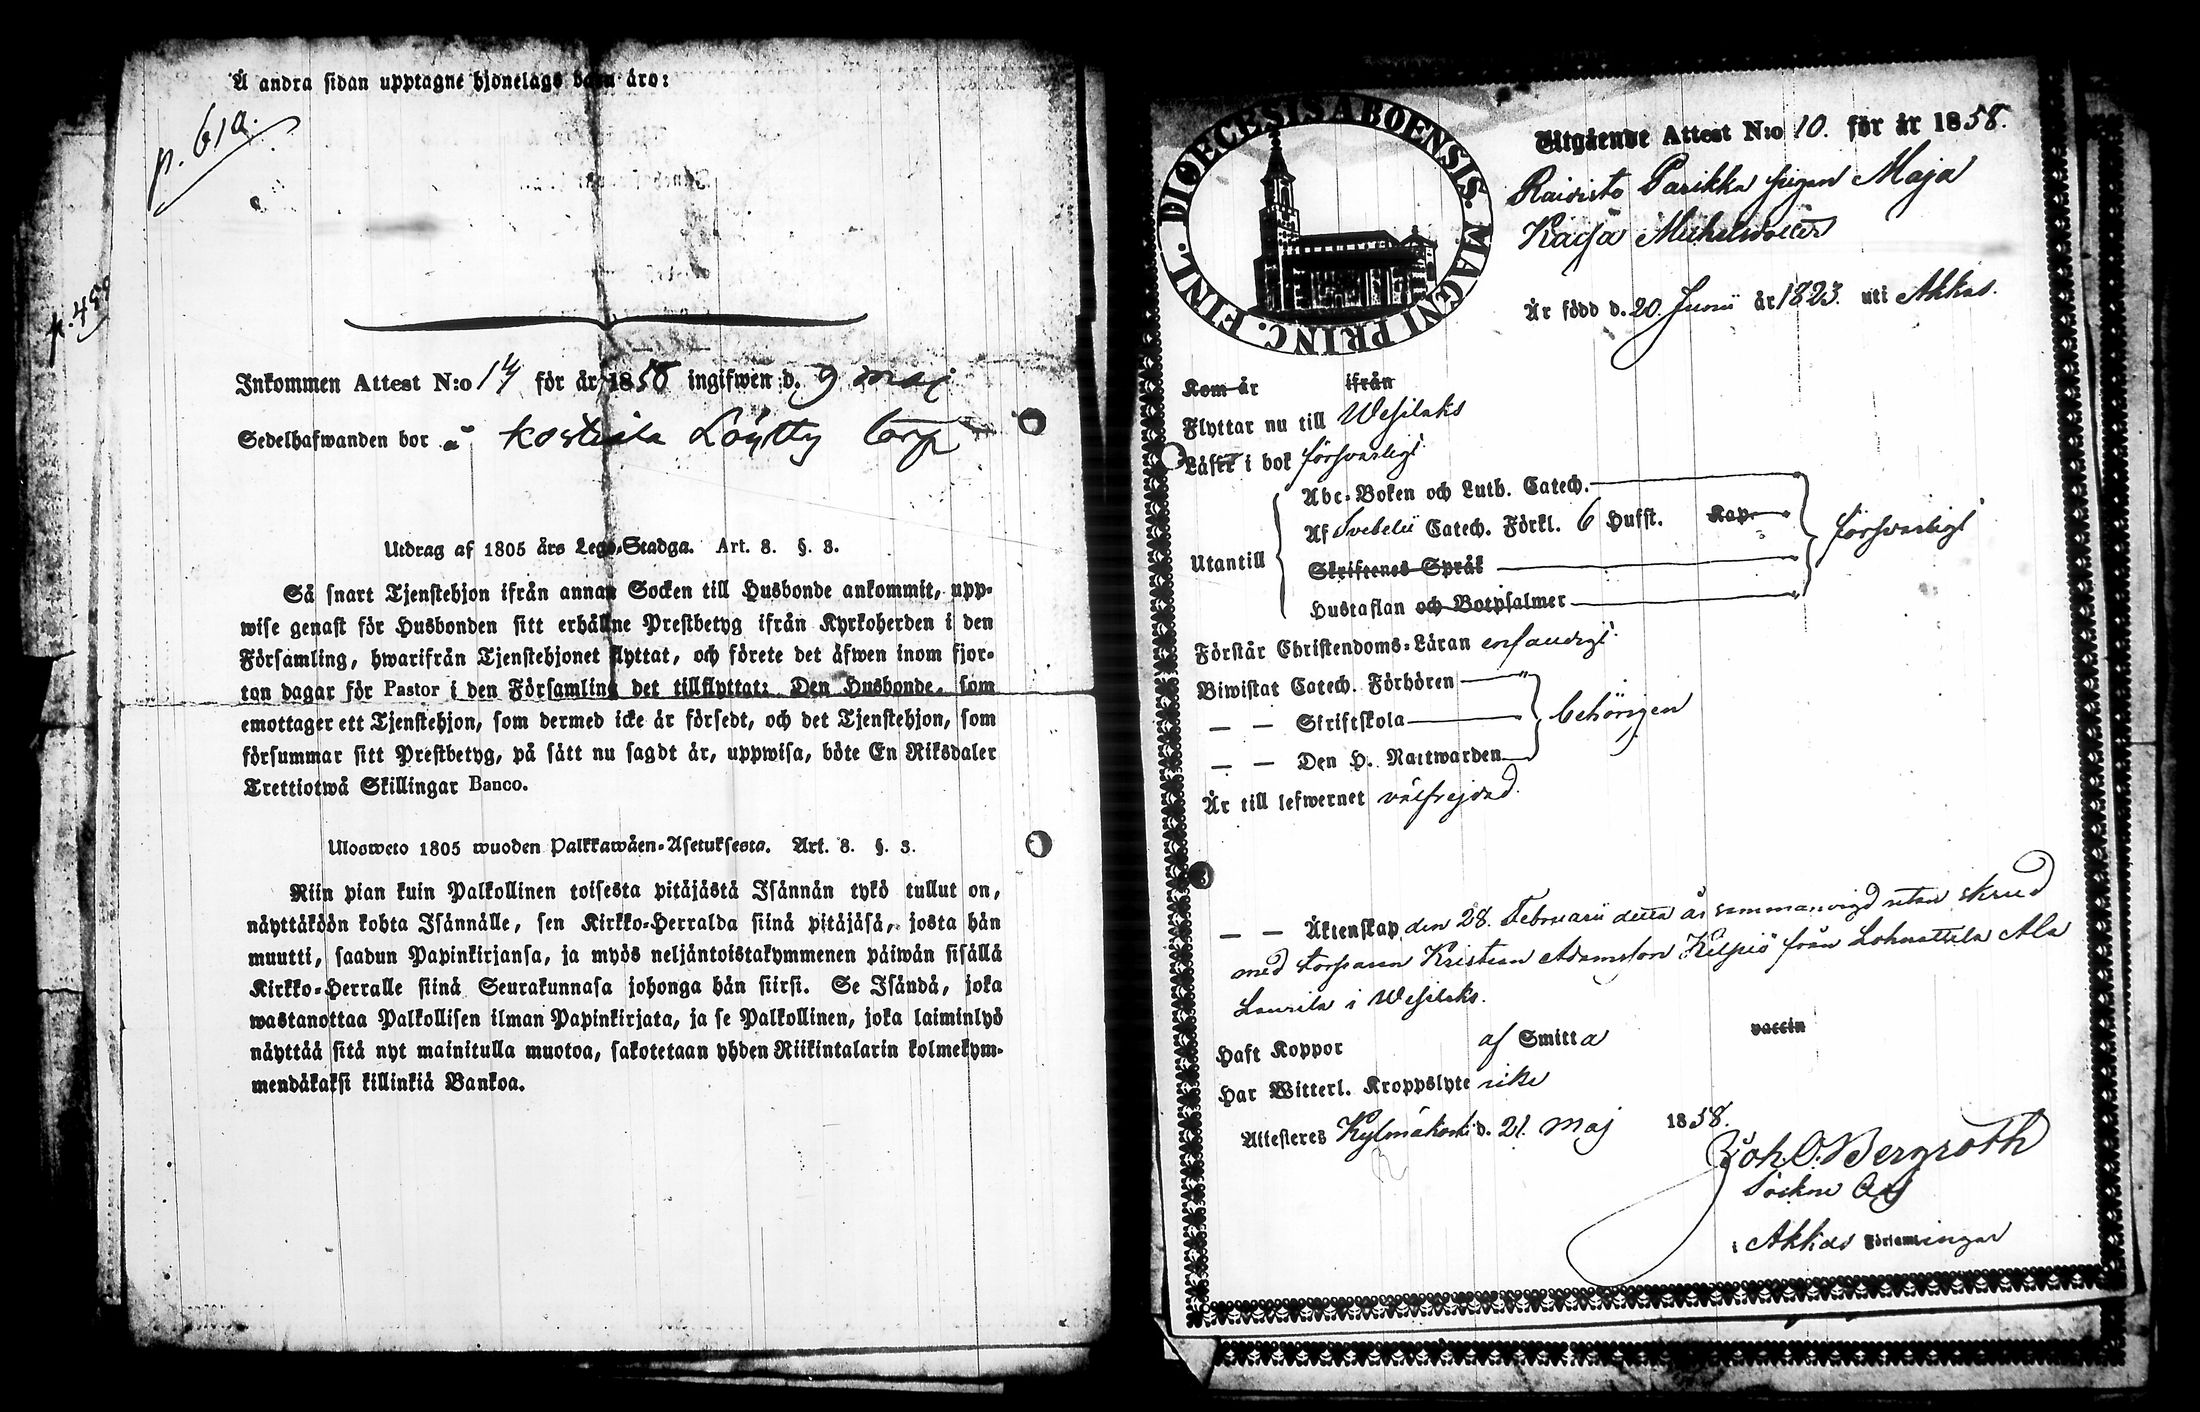 Å andra sidan upptagne hjonelags barn äro:
p. 61a.
p. 459
Inkommen Attest N:o 14 för år 1858 ingifwen d. 9 maj
Sedelhafwanden bor å Kostiala Löytty torp
Utdrag af 1805 års Lego-Stadga. Art. 8. §. 3.
Så snart Tjenstehjon ifrån annan Socken till Husbonde ankommit, upp-
wise genast för Husbonden sitt erhållne Prestbetyg ifrån Kyrkoherden i den
Församling, hwarifrån Tjenstehjonet flyttat, och förete det äfwen inom fjor-
ton dagar för Pastor i den Församling det tillflyttat: Den Husbonde, som
emottager ett Tjenstehjon, som dermed icke är försedt, och det Tjenstehjon, som
försummar sitt Prestbetyg, på sätt nu sagdt är, uppwisa, böte En Riksdaler
Trettiotwå Skillingar Banco.
Ulosweto 1805 wuoden Palkkawäen-Asetuksesta. Art. 8. §. 3.
Niin pian kuin Palkollinen toisesta pitäjästä Isännän tykö tullut on,
näyttäköön kohta Isännälle, sen Kirkko-Herralda siinä pitäjäsä, josta hän
muutti, saadun Papinkirjansa, ja myös neljäntoistakymmenen päiwän sisällä
Kirkko-Herralle siinä Seurakunnasa johonga hän siirsi. Se Isändä, joka
wastanottaa Palkollisen ilman Papinkirjata, ja se Palkollinen, joka laiminlyö
näyttää sitä nyt mainitulla muotoa, sakotetaan yhden Riikintalarin kolmekym-
mendäkaksi killinkiä Bankoa.
DIOECESIS ABOENSIS. MAGNI PRINC. FINL.
Utgående Attest N:o 10. för år 1858.
Raivisto Parikka pigan Maja
Kaisa Michelsdotter
Är född d. 20. Junii år 1823. uti Akkas.
Kom år ifrån
Flyttar nu till Wesilaks
Läser i bok försvarligt
Utantill
Abc-Boken och Luth. Catech.
Af Svebelii Catech. Förkl. 6 Hufst. Kap.
Skriftenes Språk
Hustaflan och Botpsalmer
försvarligt
Förstår Christendoms-Läran enfaldigt
Biwistat Catech. Förhören
— — Skriftskola
— — Den H. Nattwarden
behörigen
Är till lefwernet välfrejdad.
— — Äktenskap den 28. Februarii detta år sammanvigd utan skrud
med torparen Kristian Adamsson Kilpiö från Lohnattila Ala
Laurila i Wesilaks.
Haft Koppor af Smitta vaccin
Har Witterl. Kroppslyte icke
Attesteres Kylmäkoski d. 21. Maj 1858.
Joh. O. Bergroth
Sockne Adj
i Akkas Församlingar